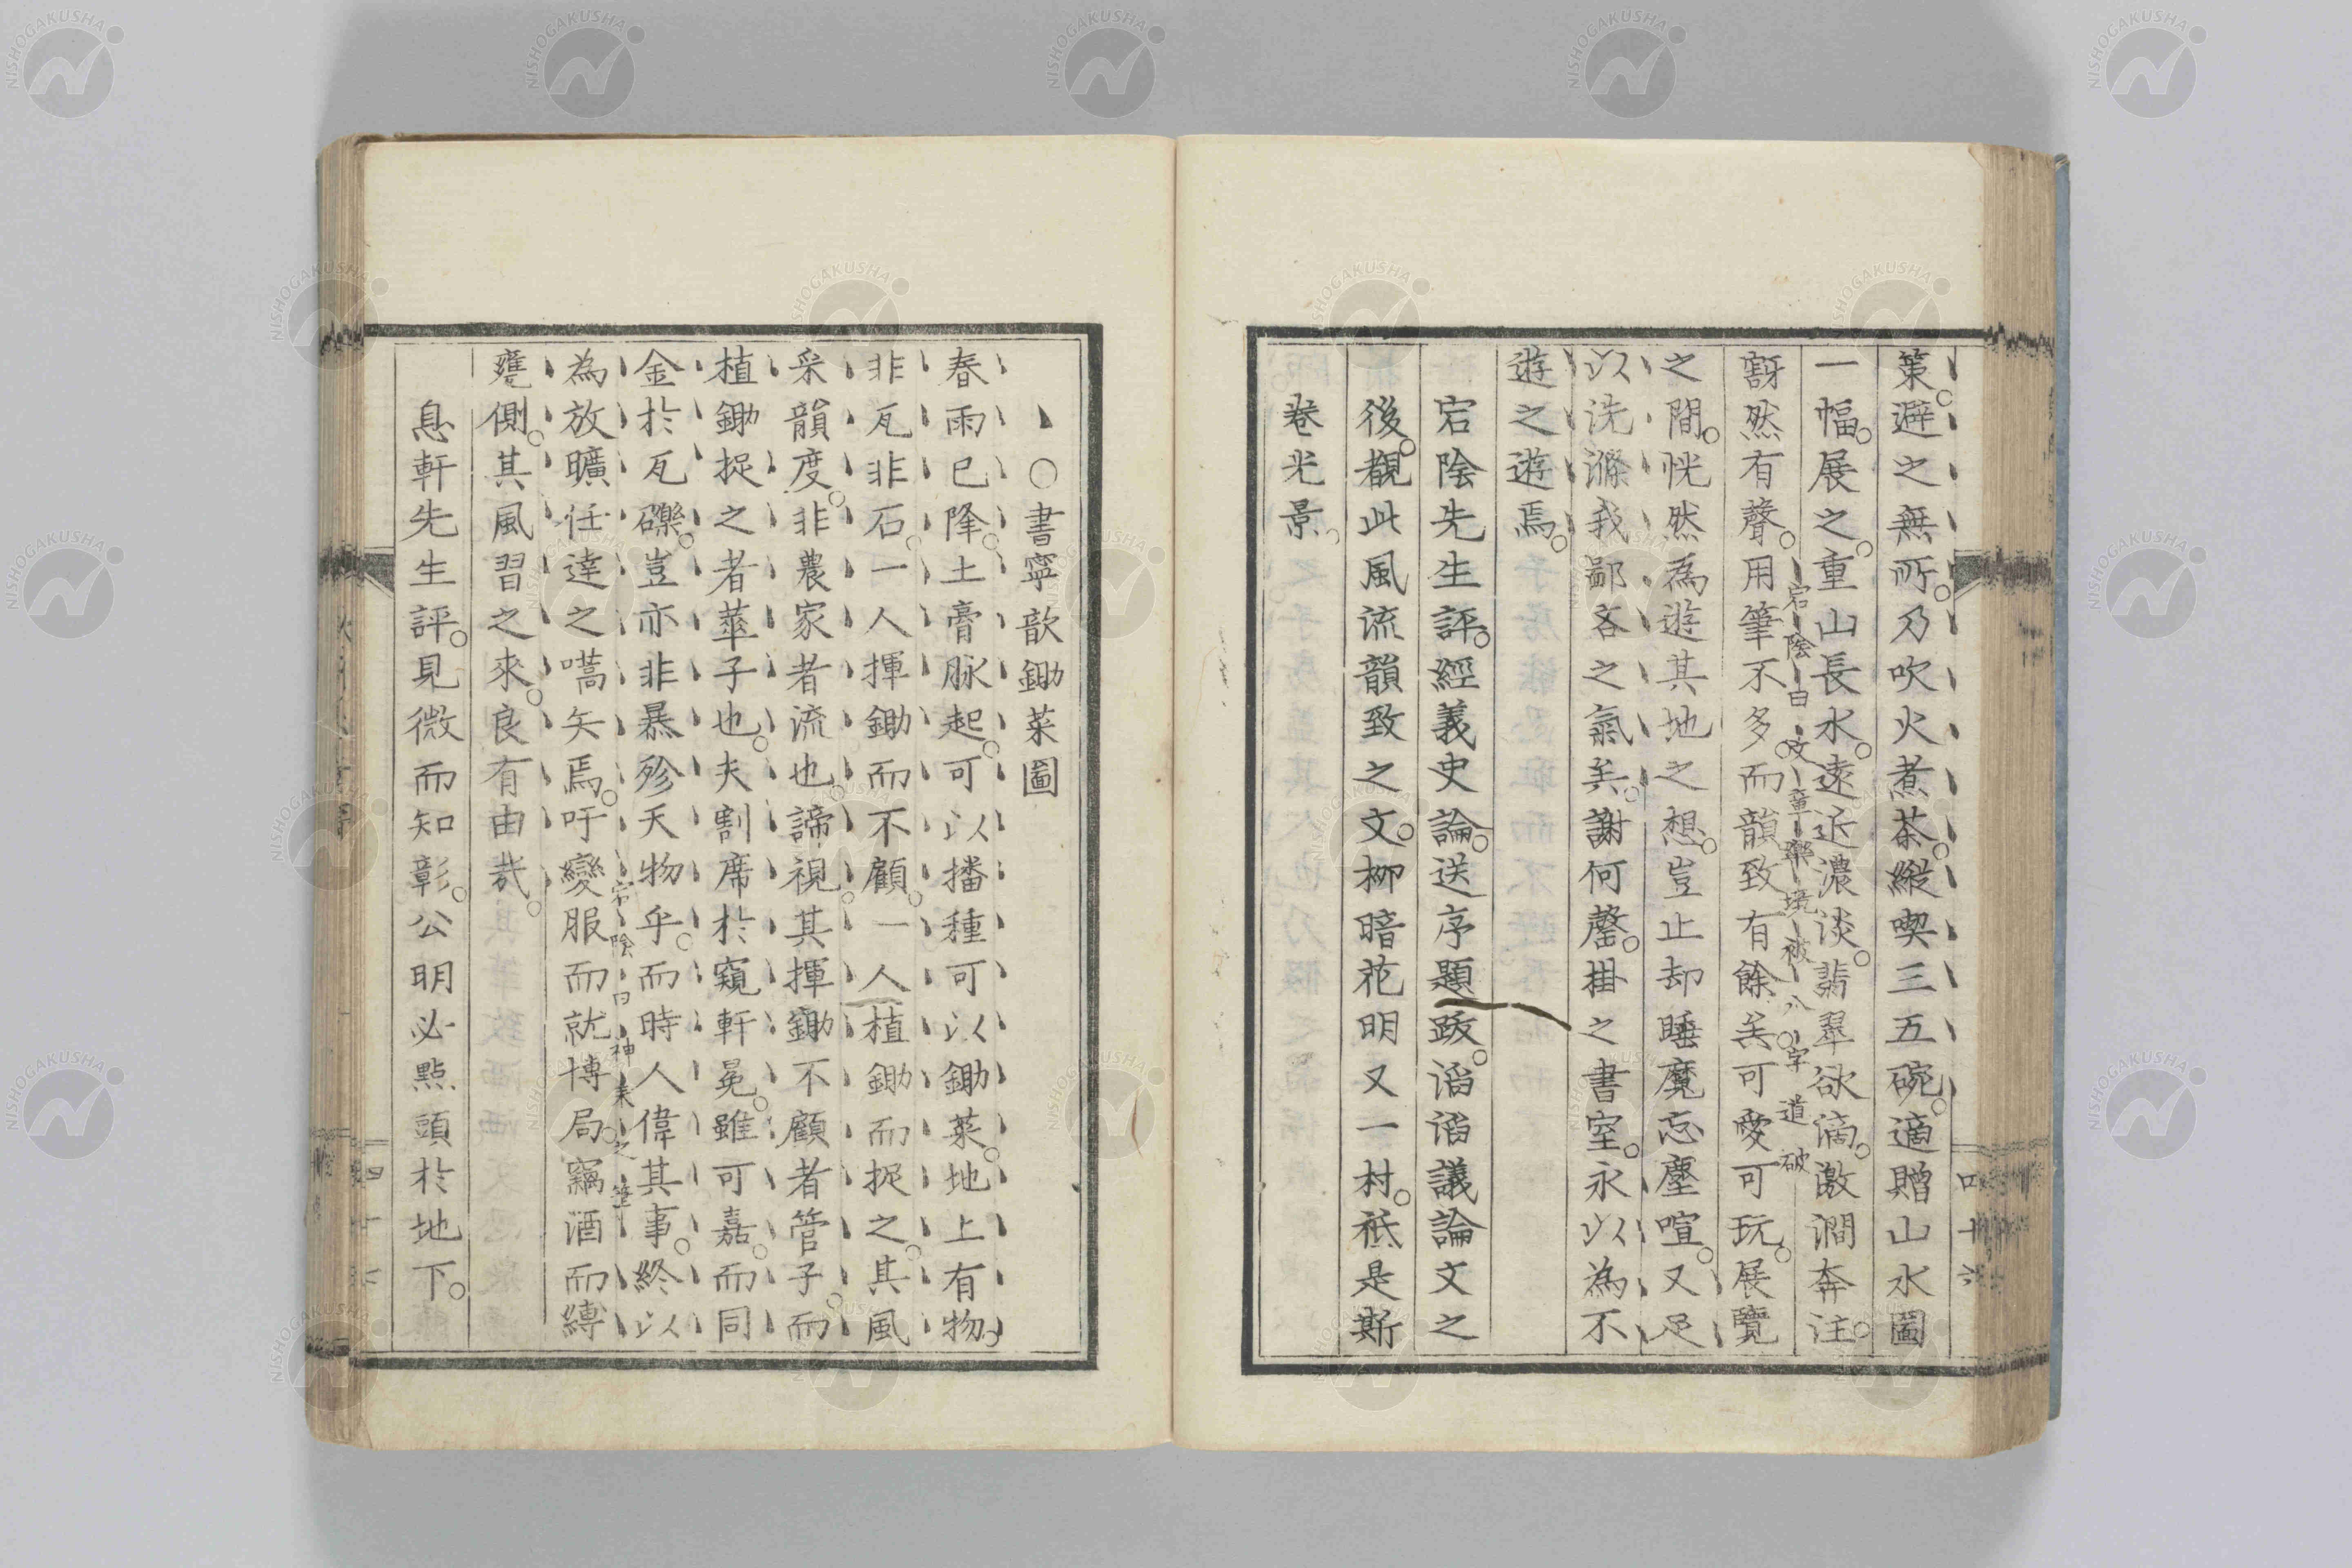 策避之無所乃吹火煮茶縱喫三五碗適贈山水圖
一幅展之重山長水遠近濃淡翡翠欲滴激澗奔注
謋然有聲用筆不多而韻致有餘羙可愛可玩展覽
宕陰曰文章邪境被八字道破
之間恍然為遊其地之想豈止却睡魔忘塵喧又足
以洗滌我鄙吝之氣羙謝何罄掛之書室永以為不
遊之遊焉
宕陰先生評經義史論送序題跋滔滔議論文之
後觀此風流韻致之文柳暗花明又一村祗是斯
卷光景
四十六
○書寧歆鋤菜圖
春雨已降土膏脉起可以播種可以鋤菜地上有物
非瓦非石一人揮鋤而不顧一人植鋤而捉之其風
采韻度非農家者流也諦視其揮鋤不顧者管子而
植鋤捉之者華子也夫割席於窺軒冕雖可嘉而同
金於瓦礫豈亦非暴殄天物乎而時人偉其事終以
宕陰曰神來之筆
為放曠任達之嚆矢焉吁變服而就博局竊酒而縛
甕側其風習之來良有由哉
息軒先生評見微而知彰公明必點頭於地下
NISHOGAKUSHA